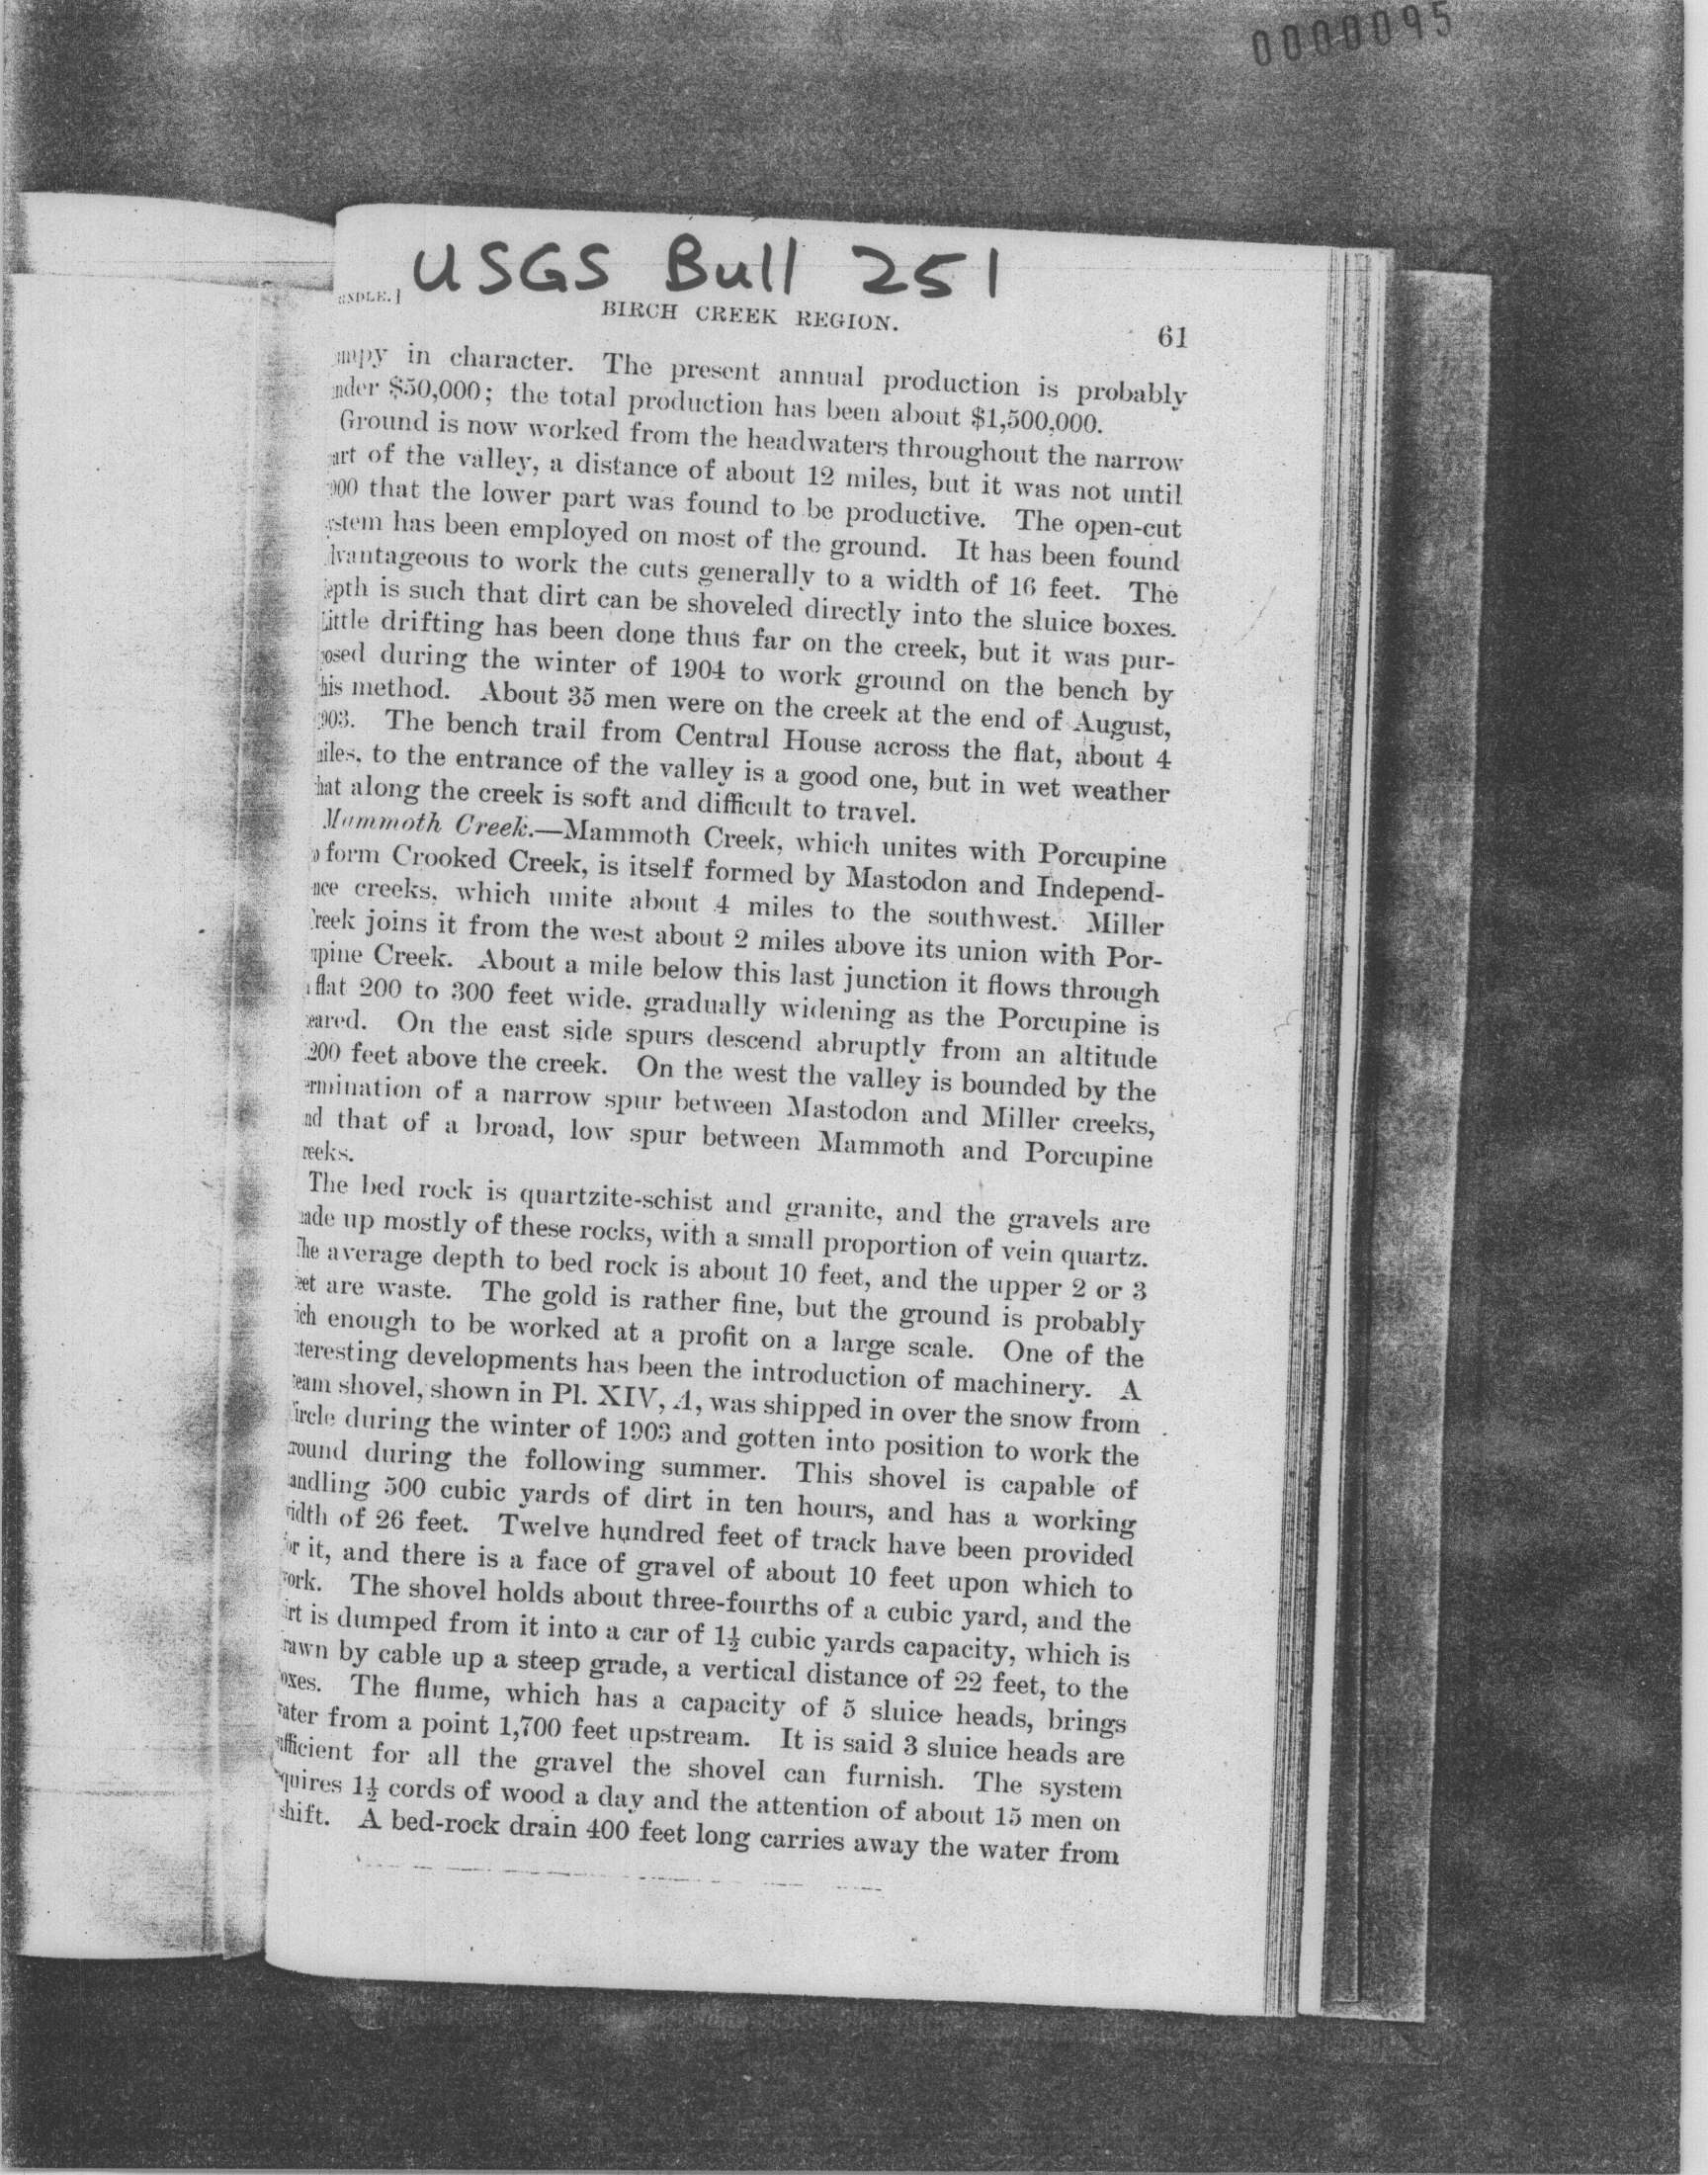 0000095
USGS Bull 251
BIRCH CREEK REGION.
61
in character. The present annual production is probably
$50,000; the total production has been about $1,500,000.
Ground is now worked from the headwaters throughout the narrow
of the valley, a distance of about 12 miles, but it was not until
that the lower part was found to be productive. The open-cut
has been employed on most of the ground. It has been found
to work the cuts generally to a width of 16 feet. The
is such that dirt can be shoveled directly into the sluice boxes.
Little drifting has been done thus far on the creek, but it was pur-
posed during the winter of 1904 to work ground on the bench by
this method. About 35 men were on the creek at the end of August,
1903. The bench trail from Central House across the flat, about 4
miles, to the entrance of the valley is a good one, but in wet weather
that along the creek is soft and difficult to travel.
Mammoth Creek.—Mammoth Creek, which unites with Porcupine
form Crooked Creek, is itself formed by Mastodon and Independ-
creeks, which unite about 4 miles to the southwest. Miller
Creek joins it from the west about 2 miles above its union with Por-
Creek. About a mile below this last junction it flows through
flat 200 to 300 feet wide, gradually widening as the Porcupine is
On the east side spurs descend abruptly from an altitude
feet above the creek. On the west the valley is bounded by the
of a narrow spur between Mastodon and Miller creeks,
that of a broad, low spur between Mammoth and Porcupine
reeks.
The bed rock is quartzite-schist and granite, and the gravels are
up mostly of these rocks, with a small proportion of vein quartz.
The average depth to bed rock is about 10 feet, and the upper 2 or 3
are waste. The gold is rather fine, but the ground is probably
enough to be worked at a profit on a large scale. One of the
developments has been the introduction of machinery. A
shovel, shown in Pl. XIV, A, was shipped in over the snow from
during the winter of 1903 and gotten into position to work the
during the following summer. This shovel is capable of
500 cubic yards of dirt in ten hours, and has a working
of 26 feet. Twelve hundred feet of track have been provided
it, and there is a face of gravel of about 10 feet upon which to
The shovel holds about three-fourths of a cubic yard, and the
is dumped from it into a car of 1½ cubic yards capacity, which is
by cable up a steep grade, a vertical distance of 22 feet, to the
The flume, which has a capacity of 5 sluice heads, brings
from a point 1,700 feet upstream. It is said 3 sluice heads are
for all the gravel the shovel can furnish. The system
1½ cords of wood a day and the attention of about 15 men on
shift. A bed-rock drain 400 feet long carries away the water from